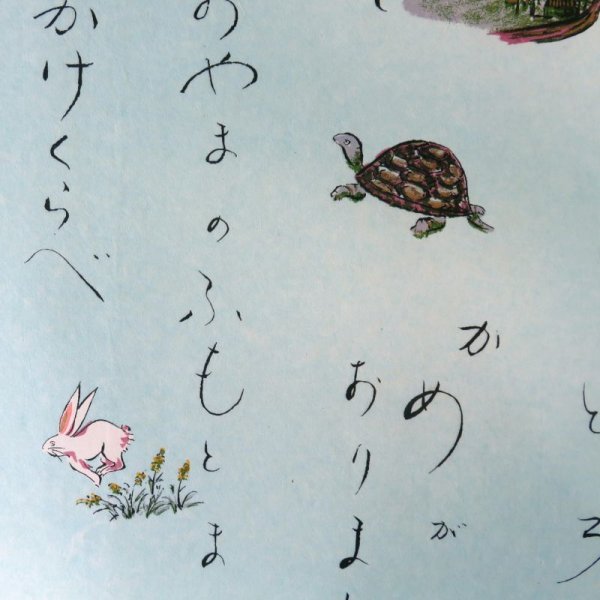 かめ が
おりま
のやまのふもとま
かけくらべ